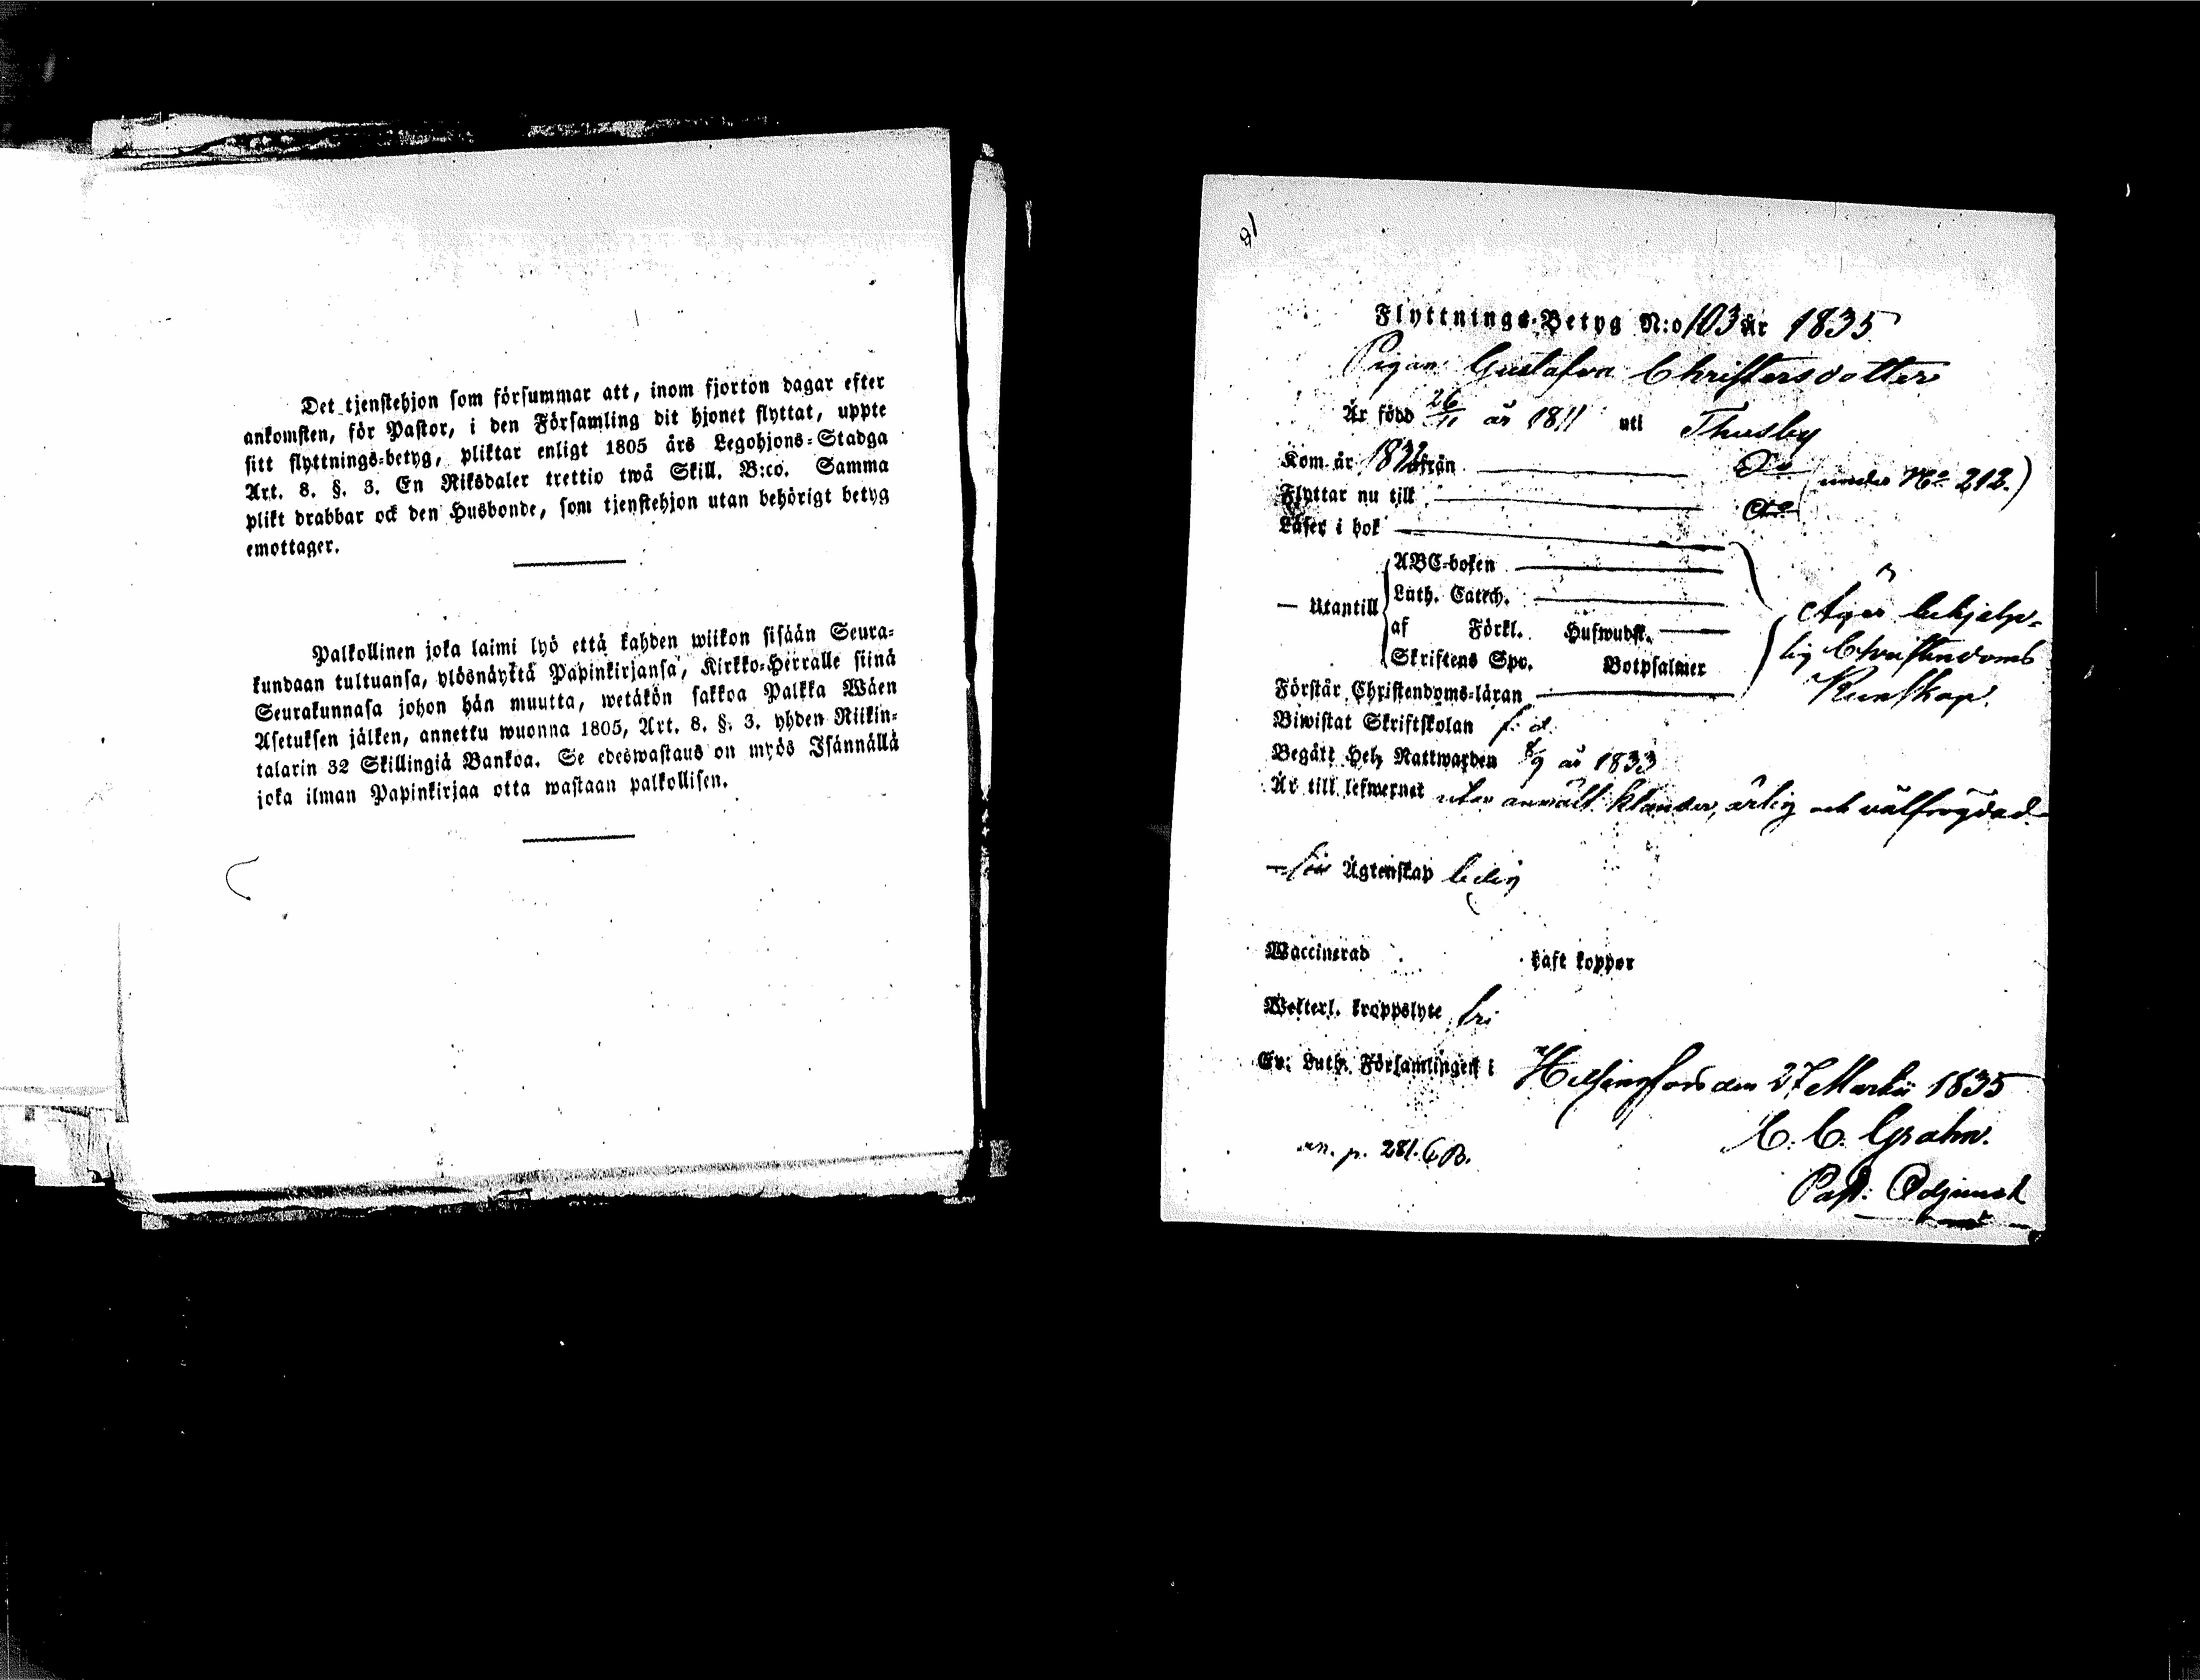 Det tjenstehjon som försummar att, inom fjorton dagar efter
ankomsten, för Pastor, i den Församling dit hjonet flyttat, uppte
sitt flyttnings-betyg, pliktar enligt 1805 års Legohjons-Stadga
Art. 8. §. 3. En Riksdaler trettio twå Skill. B:co. Samma
plikt drabbar ock den Husbonde, som tjenstehjon utan behörigt betyg
emottager.
Palkollinen joka laimi lyö että kahden wiikon sisään Seura-
kundaan tultuansa, ylösnäyttä Papinkirjansa, Kirkko-Herralle siinä
Seurakunnasa johon hän muutta, wetäkön sakkoa Palkka Wäen
Asetuksen jälken, annettu wuonna 1805, Art. 8. §. 3. yhden Riikin-
talarin 32 Skillingiä Bankoa. Se edeswastaus on myös Isännällä
joka ilman Papinkirjaa otta wastaan palkollisen.
91
Flyttnings-Betyg N:o 103 år 1835
Pigan Gustafva Christersdotter
Är född 26/11 år 1811 uti Thusby
Kom år från Do (under No 212.)
Flyttar nu till Do
Läser i bok
ABC-boken
Luth. Catech.
— Utantill af Förkl. Hufwudst.
Skriftens Spr. Botpsalmer
Äger behjelp-
lig Christendoms
Kunskap.
Förstår Christendoms-läran
Biwistat Skriftskolan f. d.
Begått Hel. Nattwarden 8/9 år 1833
Är till lefwernet utan anmält klander, ärlig och välfrägdad
— för Ägtenskap ledig
Waccinerad haft koppor
Weterl. kroppslyte fri
Ev. Luth. Församlingen i Helsingfors den 27 Martii 1835
C. C. Grahn.
Past: Adjunct
an. p. 281. C B.